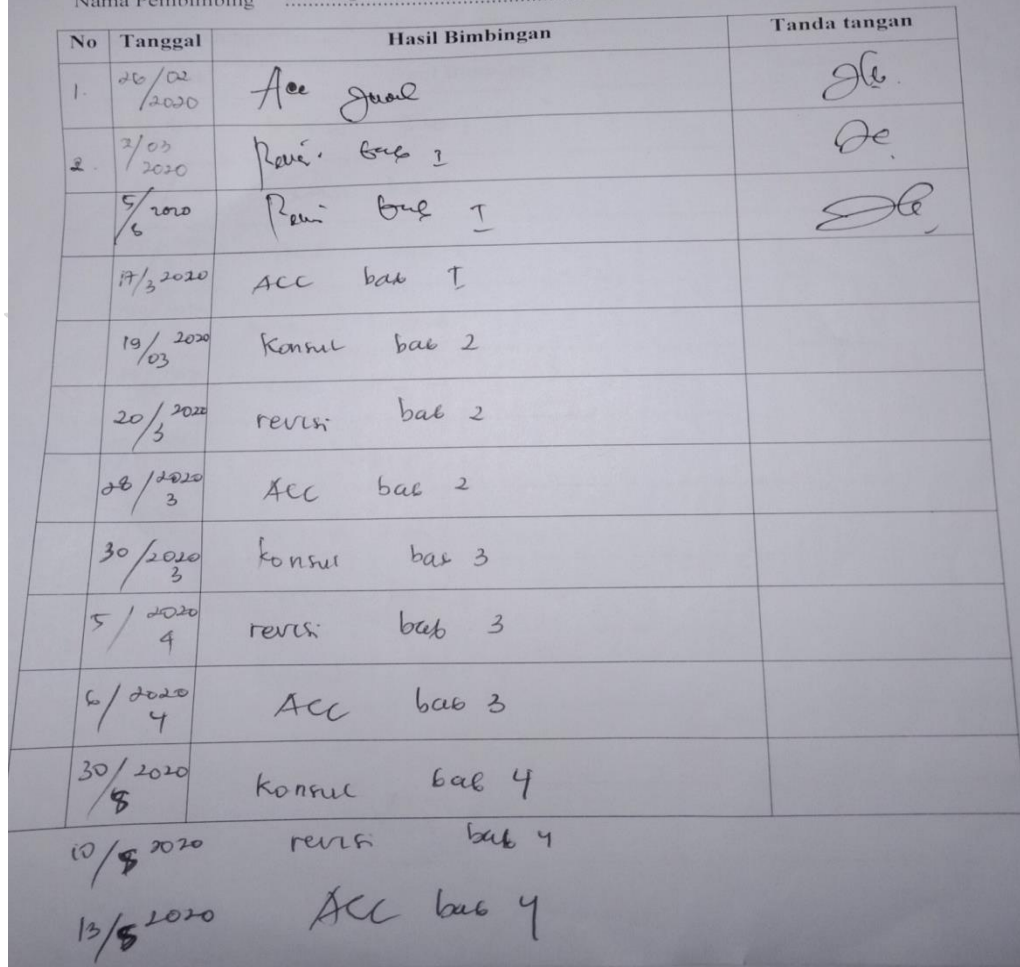 Nama Pembimbing ................................
No Tanggal Hasil Bimbingan Tanda tangan
1. 26/02/2020 Acc Judul
2. 2/03 2020 Revisi bab I
5/6 2020 Revisi bab I
17/3 2020 ACC bab I
19/03 2020 Konsul bab 2
20/3 2020 revisi bab 2
28/3 2020 ACC bab 2
30/3 2020 konsul bab 3
5/4 2020 revisi bab 3
6/4 2020 ACC bab 3
30/8 2020 Konsul bab 4
10/8 2020 revisi bab 4
13/8 2020 ACC bab 4